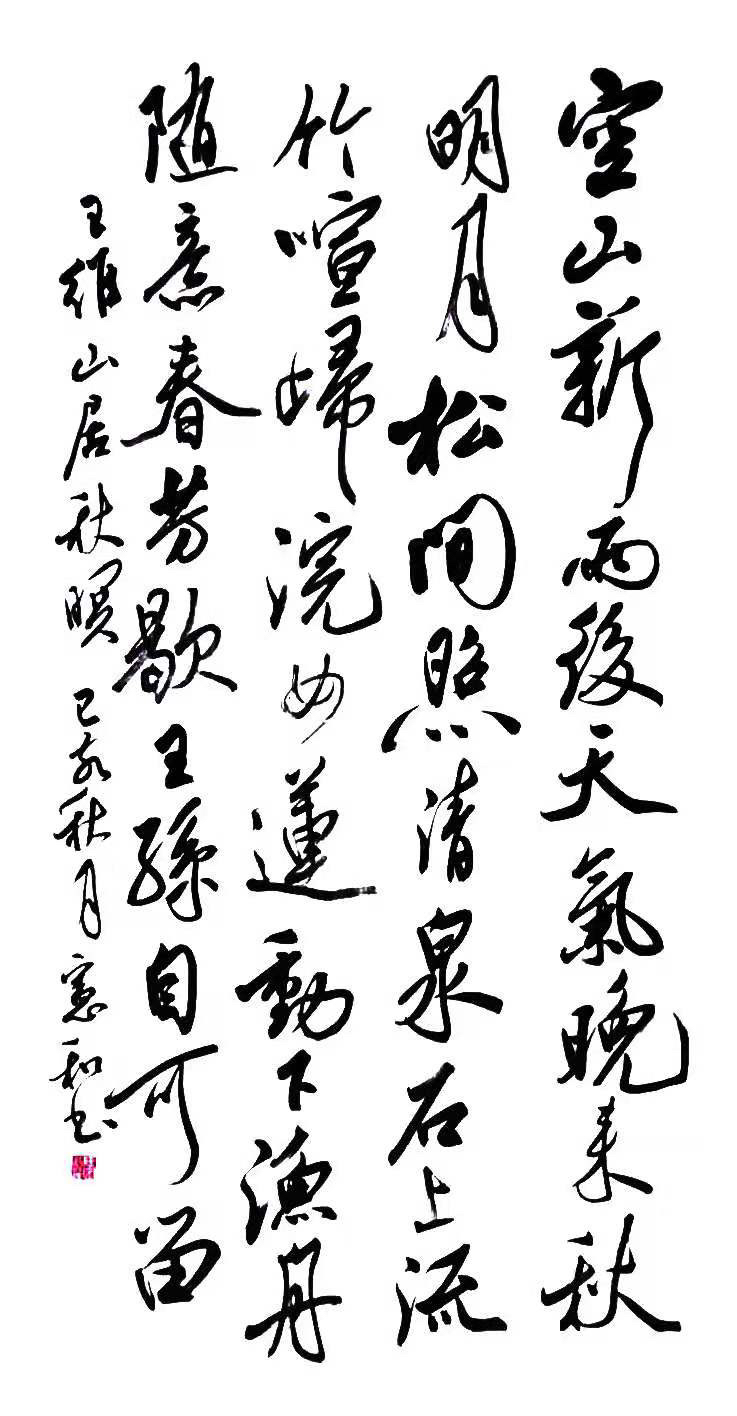 空山新雨後天氣晚來秋
明月松間照清泉石上流
竹喧歸浣女蓮動下漁舟
随意春芳歇王孫自可留
王維山居秋暝 己亥秋月 憲和书